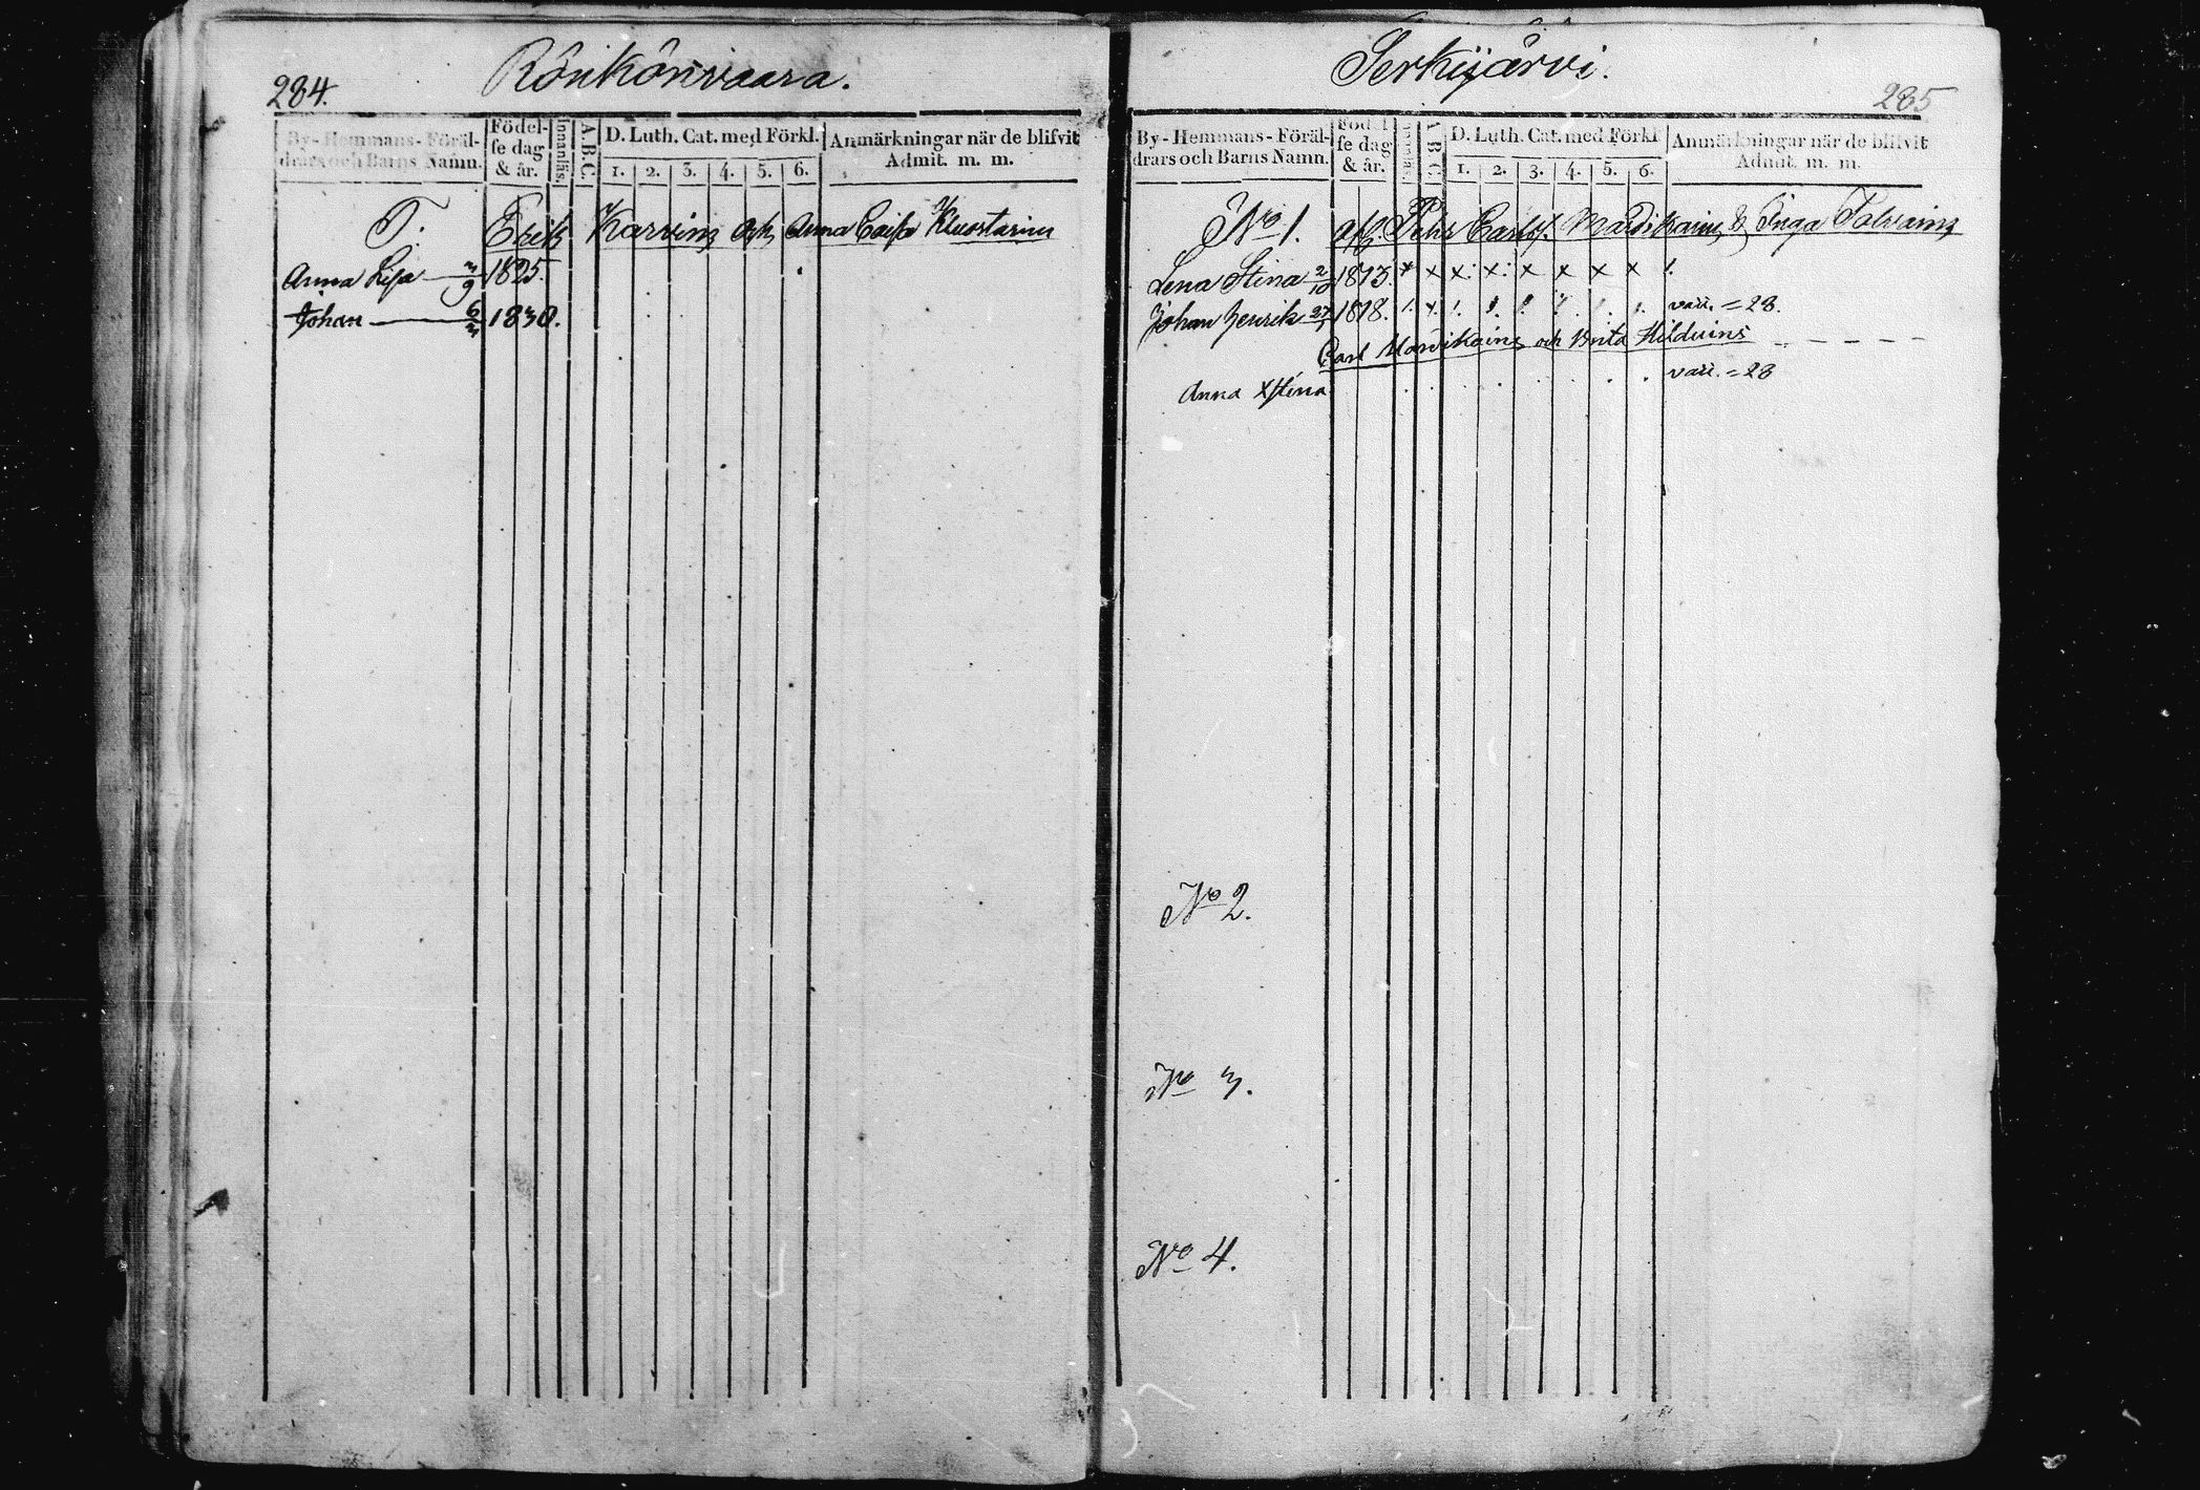 284.
Rönkönvaara.
By-Hemmans-Föräl-
drars och Barns Namn.
Födel-
se dag
& år.
Innanläs.
A.B.C.
D. Luth. Cat. med Förkl.
1. 2. 3. 4. 5. 6.
Anmärkningar när de blifvit
Admit. m. m.
T. Erik Karvin och Anna Caisa
Anna Lisa 3/9 1825.
Johan 6/3 1830.
Serkijärvi.
285
By-Hemmans-Föräl-
drars och Barns Namn.
Födel-
se dag
& år.
A.B.C.
D. Luth. Cat. med Förkl.
1. 2. 3. 4. 5. 6.
Anmärkningar när de blifvit
Admit. m. m.
No 1. Carlss. & Inga
Lena Stina 2/10 1813. x x x: x: x x x x !
Johan Henrik 1818. vari. = 28.
Carl och Brita
Anna Xstina vari. = 28
No 2.
No 3.
No 4.